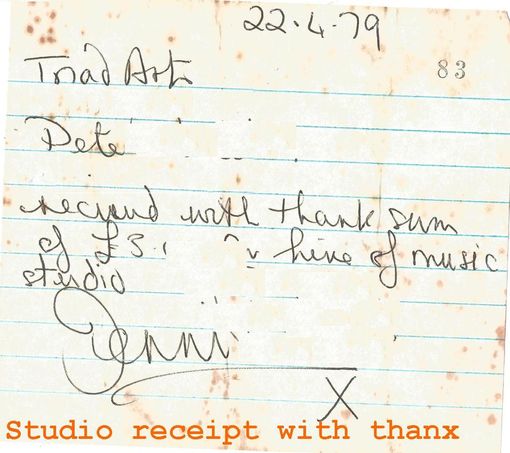 22.4.79
83
Triad Arts
Pete
recieved with thank sum
of £3. hire of music
studio
Jenni
X
Studio receipt with thanx